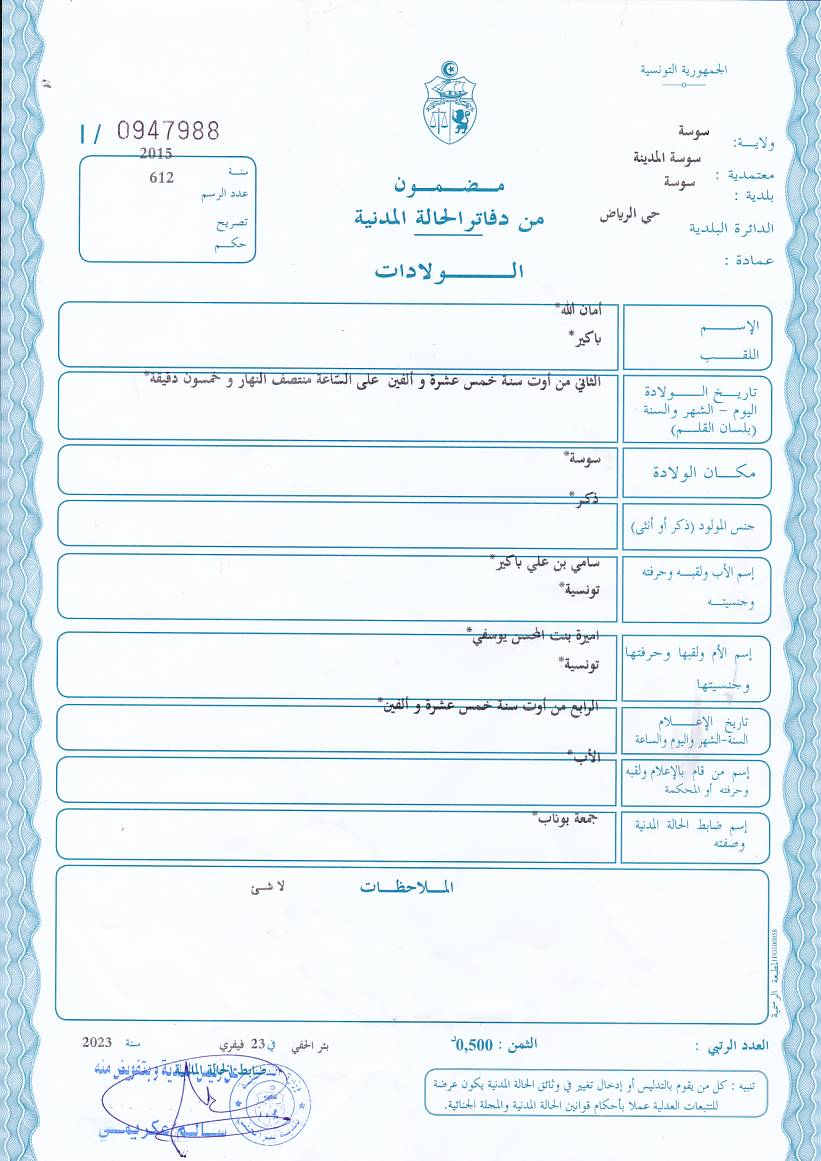 الجمهورية التونسية
I / 0947988
ولايـــة: سوسة
معتمدية : سوسة المدينة
بلدية : سوسة
الدائرة البلدية حي الرياض
عمادة :
سنـة 2015
عدد الرسم 612
تصريح
حكــم
مـــضـــمـــون
من دفاتر الحالة المدنية
الـــــــولادات
الإســــــم أمان الله*
اللقـــــب باكير*
تاريـــخ الـــــولادة الثاني من أوت سنة خمس عشرة و ألفين على السّاعة منتصف النهار و خمسون دقيقة*
اليوم – الشهر والسنة
(بلسان القلـــم)
مكـــان الولادة سوسة*
جنس المولود (ذكر أو أنثى) ذكر*
إسم الأب ولقبـــه وحرفته سامي بن علي باكير*
وجنسيتـــه تونسية*
إسم الأم ولقبها وحرفتها اميرة بنت المحسن يوسفي*
وجنسيتها تونسية*
تاريخ الإعـــــلام الرابع من أوت سنة خمس عشرة و ألفين*
السنة-الشهر واليوم والساعة
إسم من قام بالإعلام ولقبه الأب*
وحرفته أو المحكمة
إسم ضابط الحالة المدنية جمعة بوناب*
وصفته
المـــلاحظـــات لا شئ
المطبعة الرسمية
العدد الرتبي : الثمن : 0,500د بئر الحفي في 23 فيفري سنة 2023
ضابط الحالة المدنية وبتفويض منه
سالم عكريمي
تنبيه : كل من يقوم بالتدليس أو إدخال تغيير في وثائق الحالة المدنية يكون عرضة
للتتبعات العدلية عملا بأحكام قوانين الحالة المدنية والمجلة الجنائية.